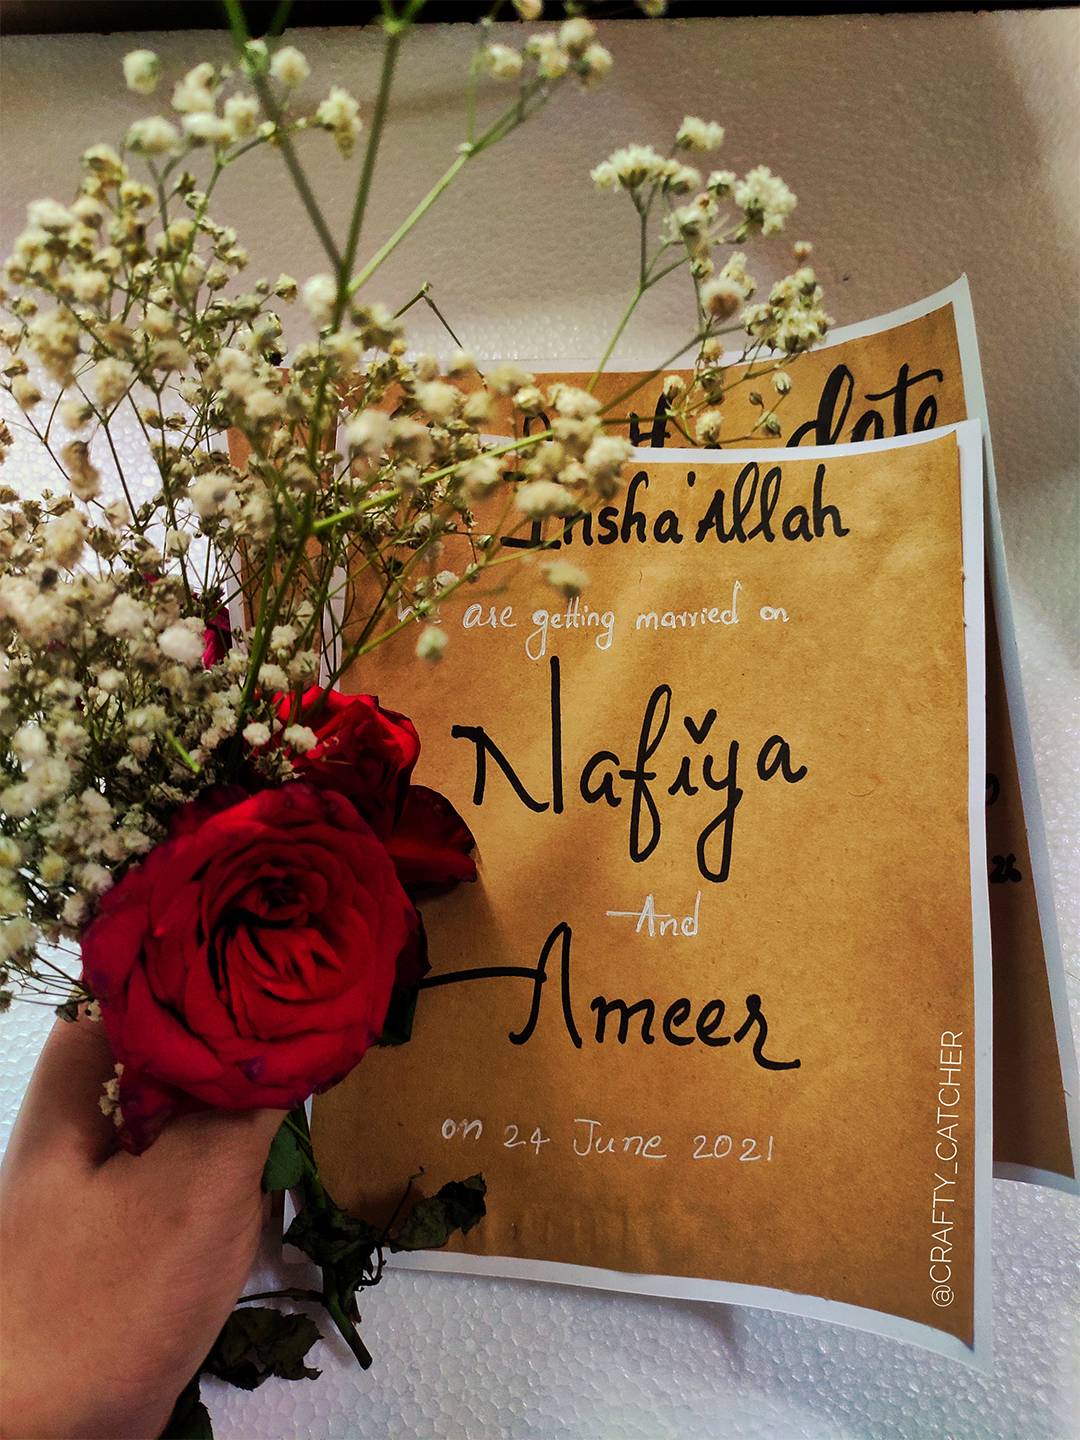 the date
Insha'Allah
We are getting married on
Nafiya
And
Ameer
on 24 June 2021
26
@CRAFTY_CATCHER